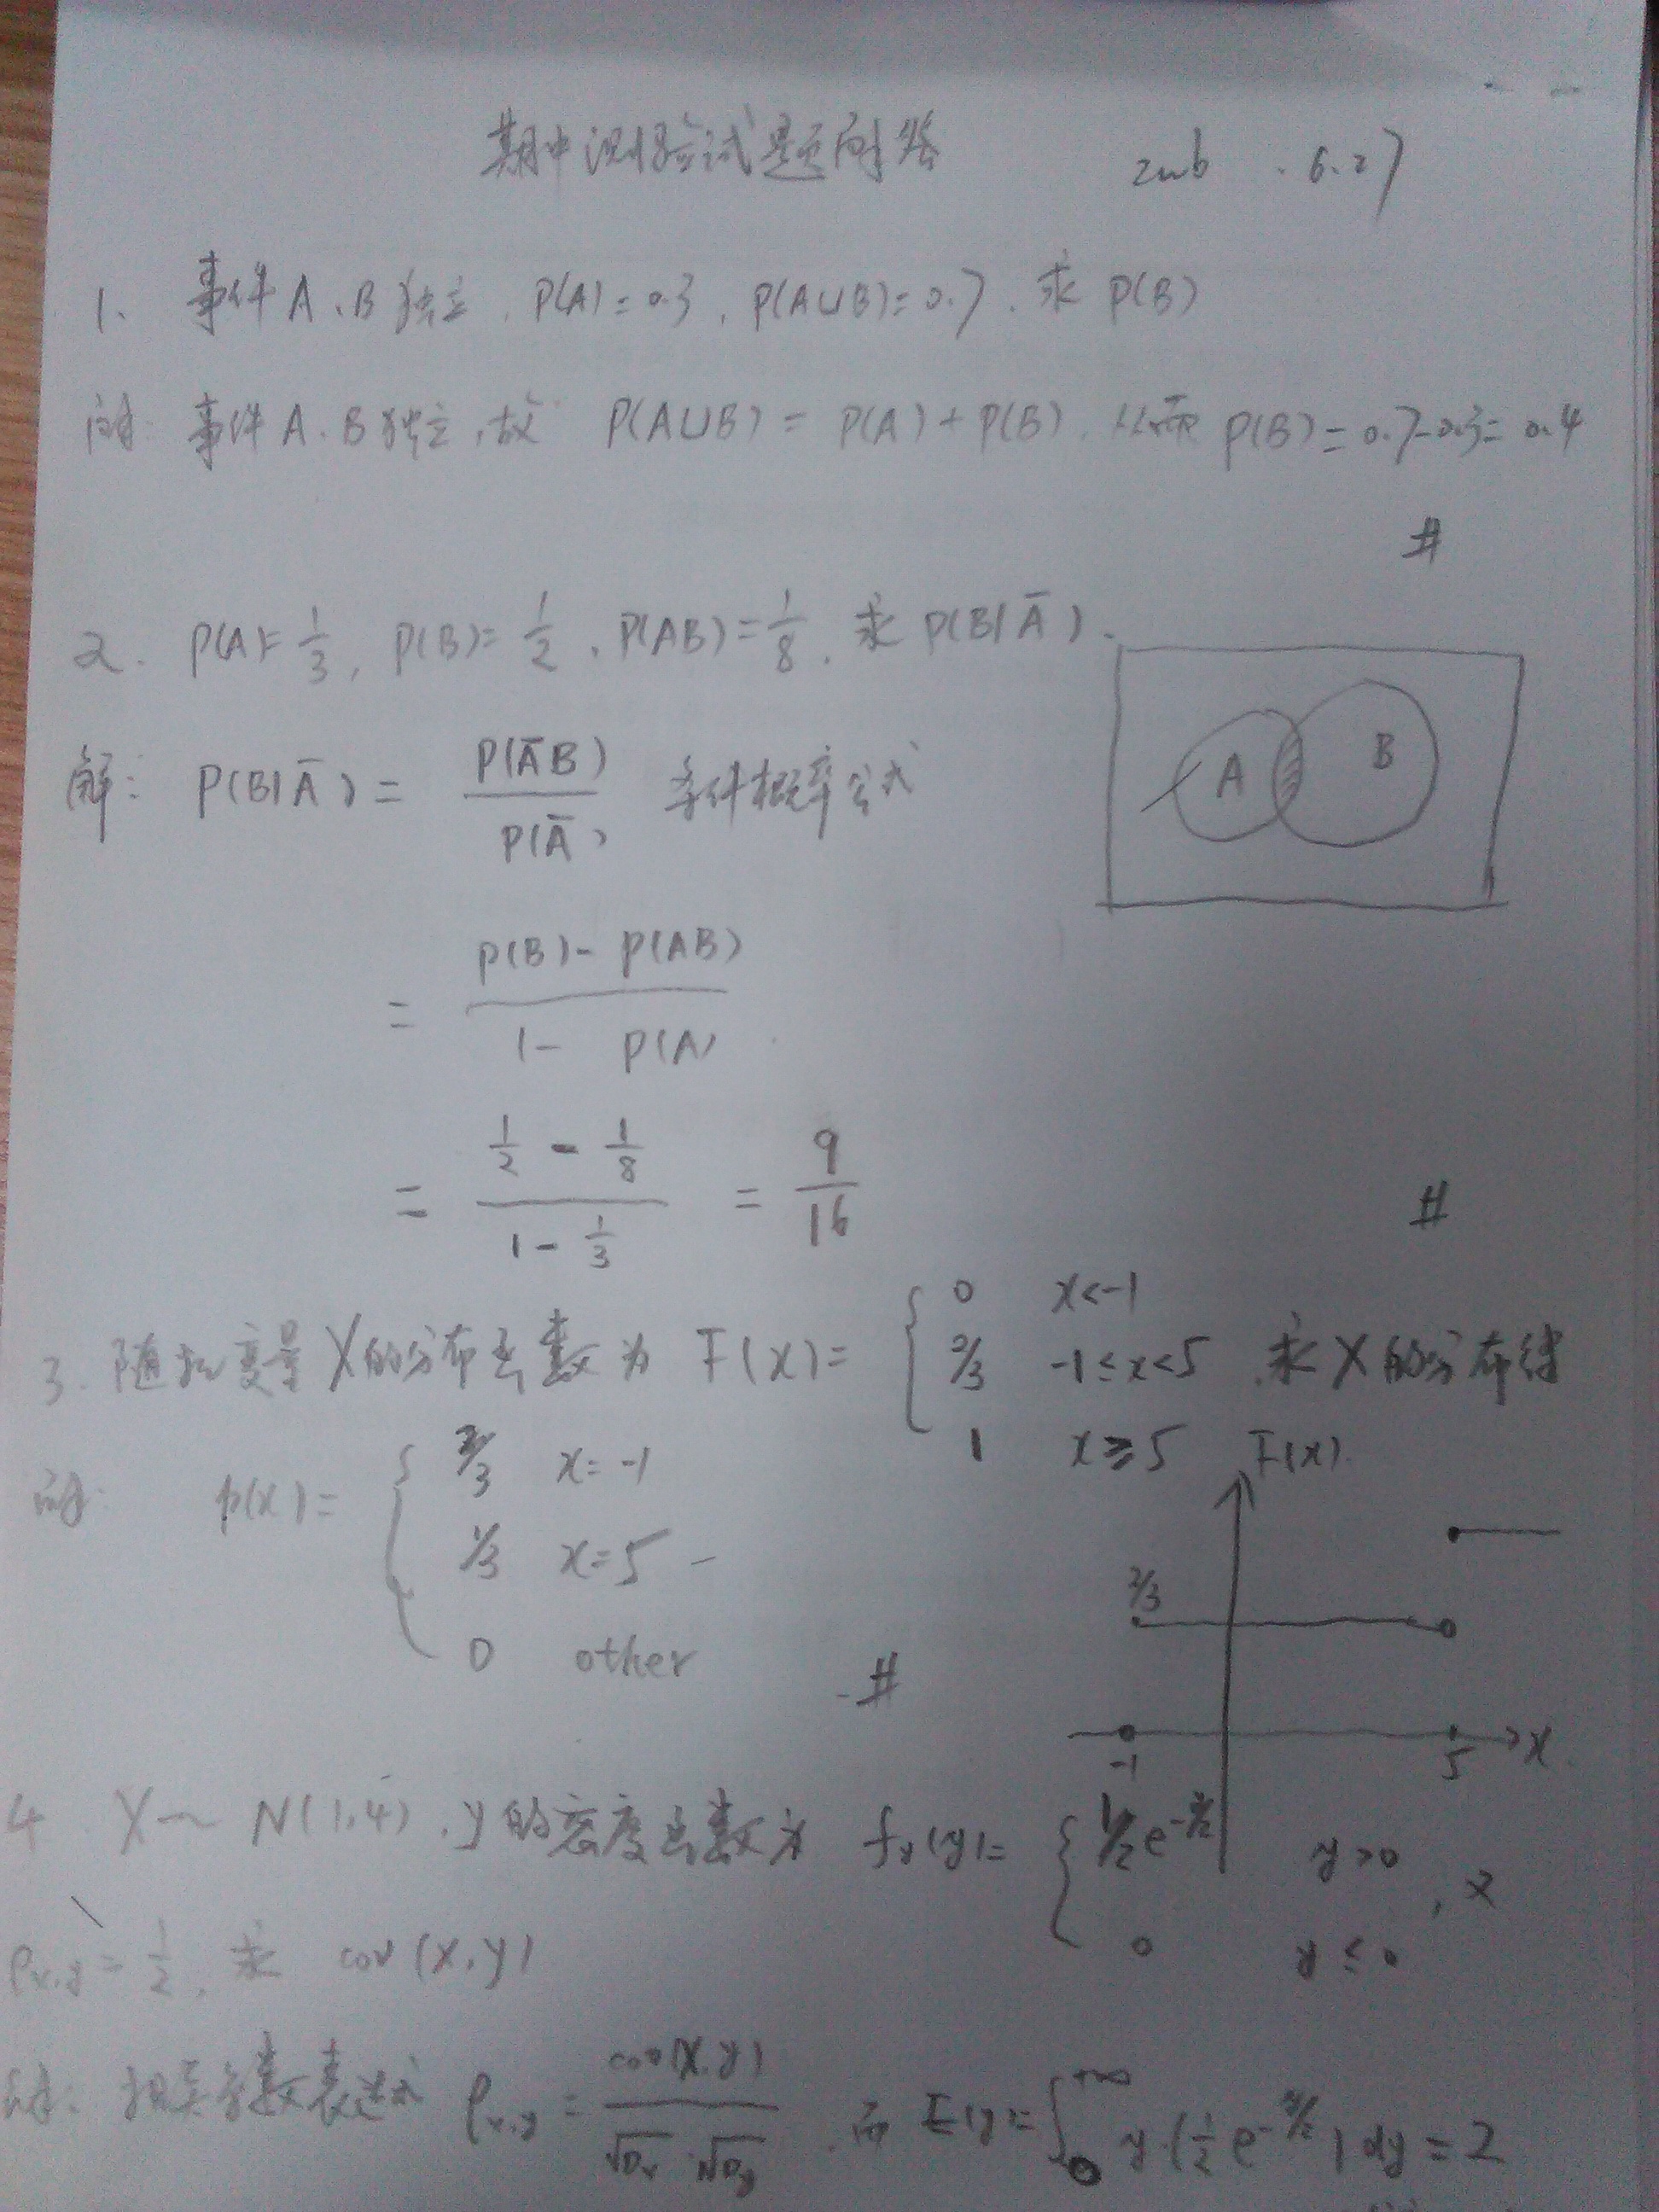 期中测验试题解答 2016 . 6.27
1. 事件 A、B 独立, P(A)=0.3, P(A∪B)=0.7. 求 P(B)
解: 事件 A、B 独立, 故 P(A∪B) = P(A)+P(B), 从而 P(B)=0.7-0.3=0.4
#
2. P(A)=1/3, P(B)=1/2, P(AB)=1/8, 求 P(B|Ā).
A B
解: P(B|Ā) = P(ĀB)/P(Ā) 条件概率公式
= (P(B)-P(AB))/(1-P(A))
= (1/2 - 1/8)/(1 - 1/3) = 9/16
#
3. 随机变量 X 的分布函数为 F(x)= { 0 x<-1
2/3 -1≤x<5 , 求 X 的分布律
1 x≥5
解: p(x)= { 2/3 x=-1
1/3 x=5
0 other
#
F(x)
2/3
-1 5 x
4 X~N(1,4), y 的密度函数为 fy(y)= { 1/2 e^{-y/2} y>0
0 y≤0 , 又
ρx,y = 1/2, 求 cov(x,y)
解: 相关系数表达式 ρx,y = cov(x,y)/(√Dx·√Dy) , 而 E(y)=∫_0^{+∞} y·(1/2 e^{-y/2})dy=2